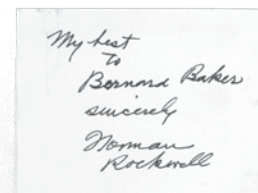 My best
to
Bernard Baker
sincerely
Norman
Rockwell